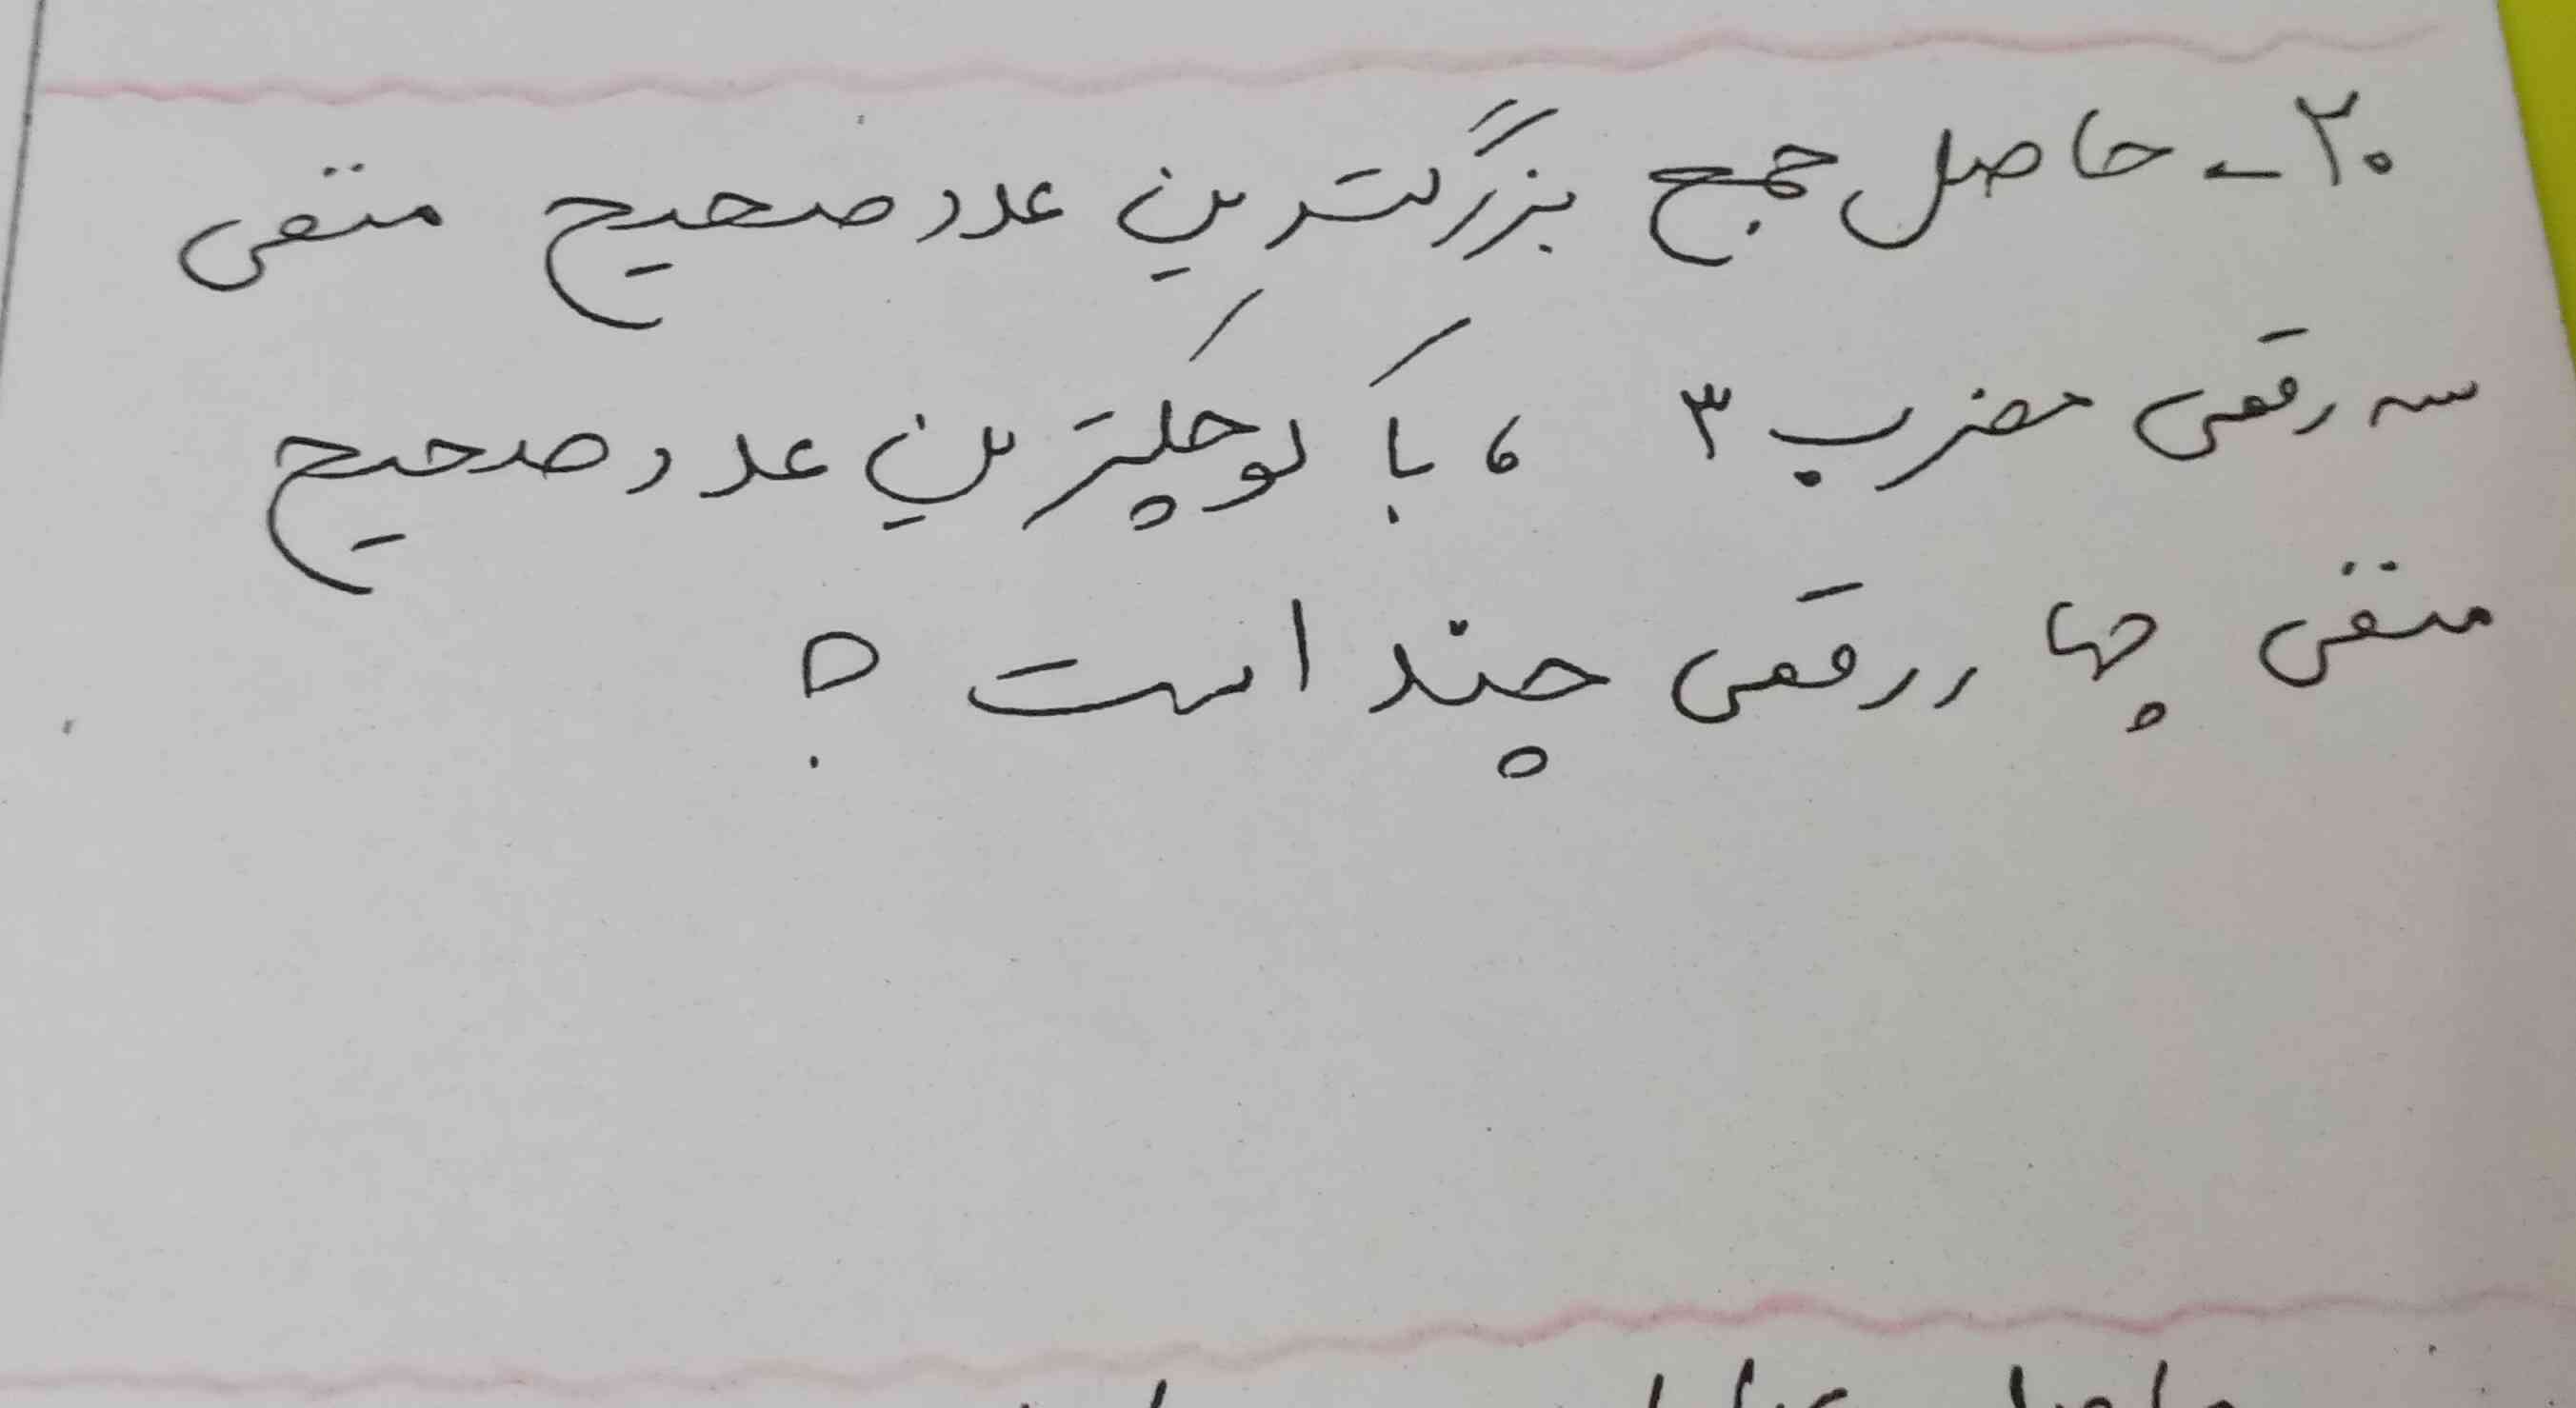 ۲۰- حاصل جمع بزرگترین عدد صحیح منفی
سه رقمی مضرب ۳ ، با کوچکترین عدد صحیح
منفی چهاررقمی چند است ؟